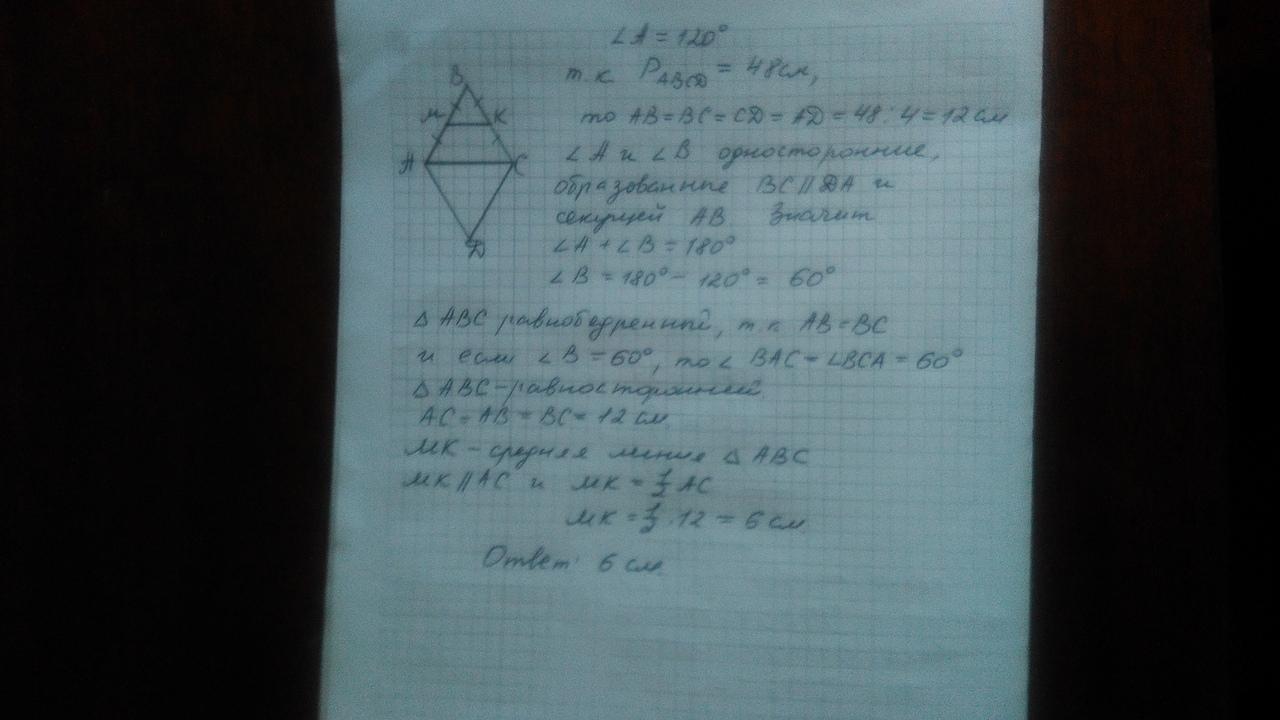 ∠A = 120°
т.к. P_ABCD = 48см,
то AB=BC=CD=AD=48:4=12см
∠A и ∠B односторонние,
образованные BC∥DA и
секущей AB. Значит
∠A + ∠B = 180°
∠B = 180° - 120° = 60°
B
M K
A C
D
△ABC равнобедренный, т.к. AB=BC
и если ∠B = 60°, то ∠BAC = ∠BCA = 60°
△ABC - равносторонний.
AC = AB = BC = 12 см.
MK - средняя линия △ABC
MK∥AC и MK = 1/2 AC
MK = 1/2 · 12 = 6 см.
Ответ: 6 см.